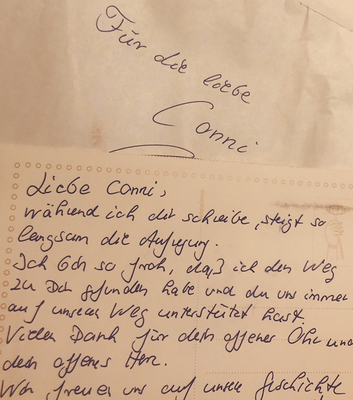 Für die liebe
Conni
Liebe Conni,
während ich dir schreibe, steigt so
langsam die Aufregung.
Ich bin so froh, daß ich den Weg
zu Dir gefunden habe und du uns immer
auf unseren Weg unterstützt hast.
Vielen Dank für dein offenes Ohr und
dein offenes Herz.
Wir freuen uns auf unsere Geschichte